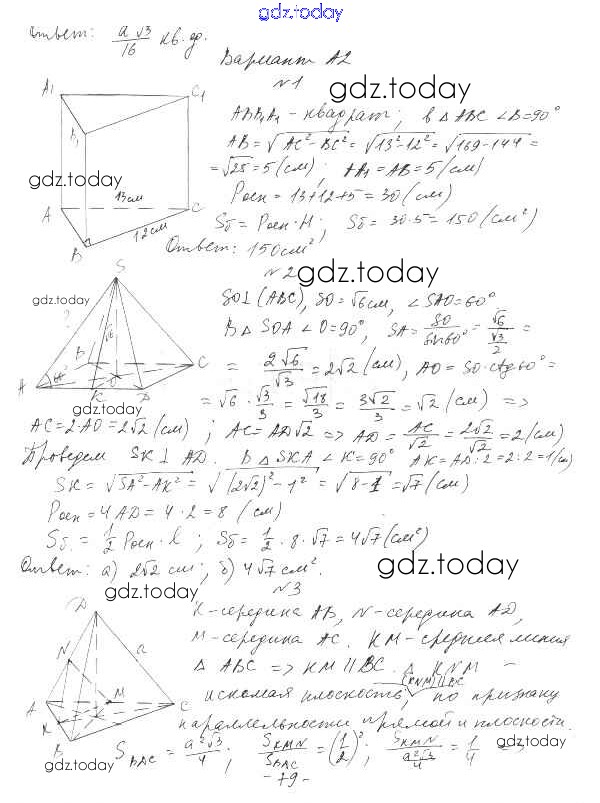 gdz.today
Ответ: a√3/16 кв.ед.
Вариант А2
№1
gdz.today
ABB₁A₁ - квадрат; в △ABC ∠B=90°
AB = √AC²-BC² = √13²-12² = √169-144 =
= √25 = 5 (см); AA₁ = AB = 5 (см)
Pосн = 13+12+5 = 30 (см)
Sб = Pосн·H; Sб = 30·5 = 150 (см²)
Ответ: 150 см²
A₁ C₁
B₁
gdz.today
13см
A C
12см
B
№2 gdz.today
SO⊥(ABC), SO=√6см, ∠SAO=60°
В △SOA ∠O=90°, SA = SO/sin60° = √6/(√3/2) =
= 2√6/√3 = 2√2 (см), AO = SO·ctg60° =
= √6·√3/3 = √18/3 = 3√2/3 = √2 (см) =>
S
gdz.today
?
√6
B C
A 60° O
K D
gdz.today
AC=2AO=2√2 (см); AC=AD√2 => AD = AC/√2 = 2√2/√2 = 2 (см)
Проведем SK⊥AD. В △SKA ∠K=90° AK=AD:2=2:2=1(см)
SK = √SA²-AK² = √(2√2)²-1² = √8-1 = √7 (см)
Pосн = 4AD = 4·2 = 8 (см)
Sб. = 1/2 Pосн·l; Sб = 1/2·8·√7 = 4√7 (см²)
Ответ: а) 2√2 см; б) 4√7 см².
gdz.today
gdz.today
№3
K-середина AB, N-середина AD,
M-середина AC. KM-средняя линия
△ABC => KM∥BC. △KNM -
(KNM)∥BC
искомая плоскость, по признаку
параллельности прямой и плоскости.
D
a
N
A M C
K
B
S BDC = a²√3/4; S KMN/S BDC = (1/2)²; S KMN/(a²√3/4) = 1/4 =>
gdz.today
gdz.today
- 79 -